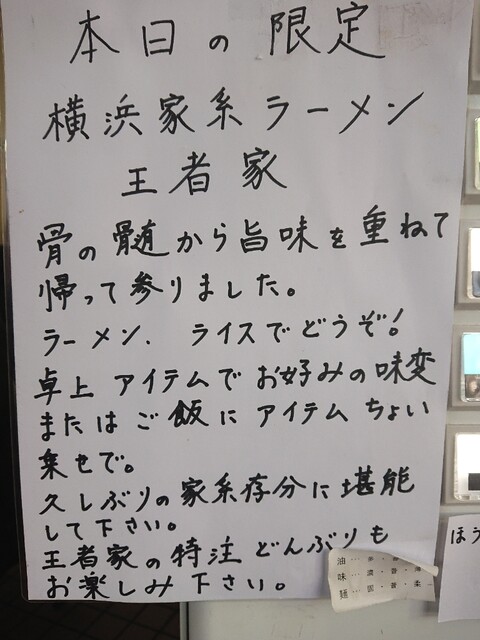 本日の限定
横浜家系ラーメン
王者家
骨の髄から旨味を重ねて
帰って参りました。
ラーメン、ライスでどうぞ!
卓上アイテムでお好みの味変
またはご飯にアイテムちょい
乗せで。
久しぶりの家系存分に堪能
して下さい。
王者家の特注どんぶりも
お楽しみ下さい。
油
味
麺
ほう